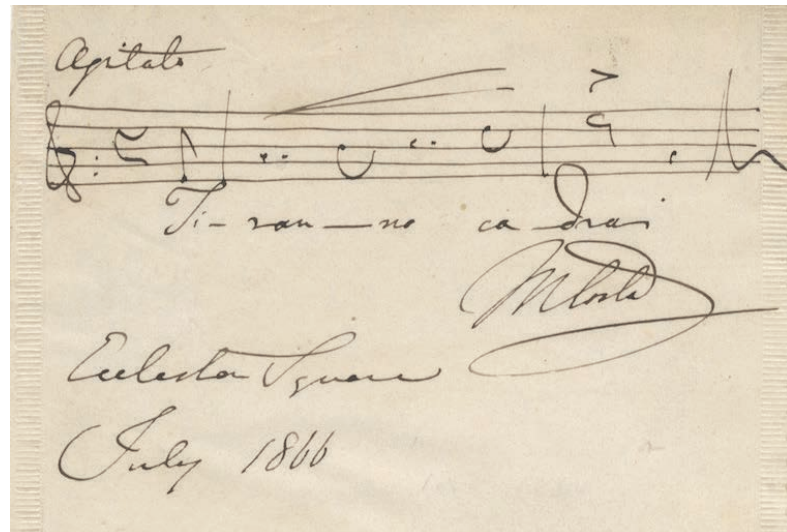 Agitato
Ti-ran-no ca-drai
MCosta
Eccleston Square
July 1866